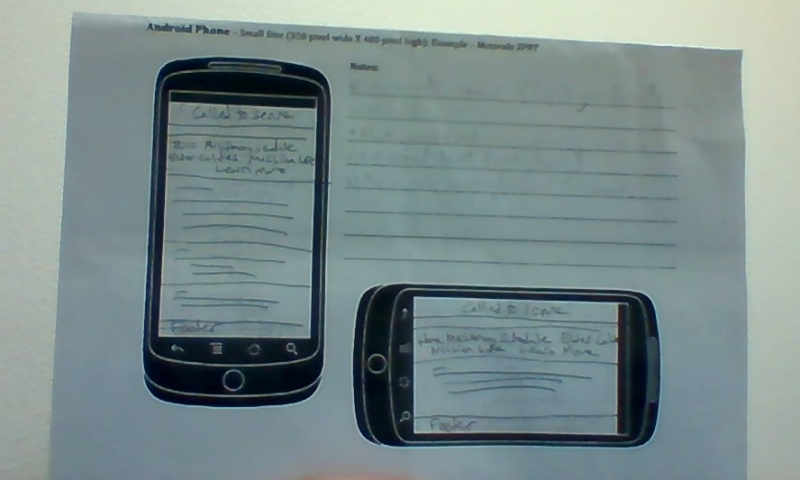 Android Phone - Small Size (320 pixel wide X 480 pixel high): Example - Motorola
Notes:
Called to Serve
Missionary Schedule
Mission Life
Learn More
Footer
Called to Serve
Home Missionary Schedule
Mission Life Learn More
Footer